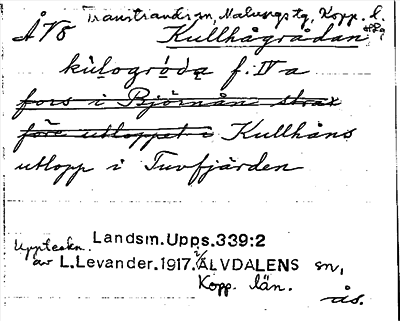 Transtrands sn, Malungs tg, Kopp. l.
ÅVS Kullhågrådan
kùlogró̀dą f. IV a
fors i Björnån strax
före utloppet i Kullhåns
utlopp i Tuvfjärden
Uppteckn. Landsm. Upps. 339:2
av L. Levander. 1917. i ÄLVDALENS sn,
Kopp. län.
ås.